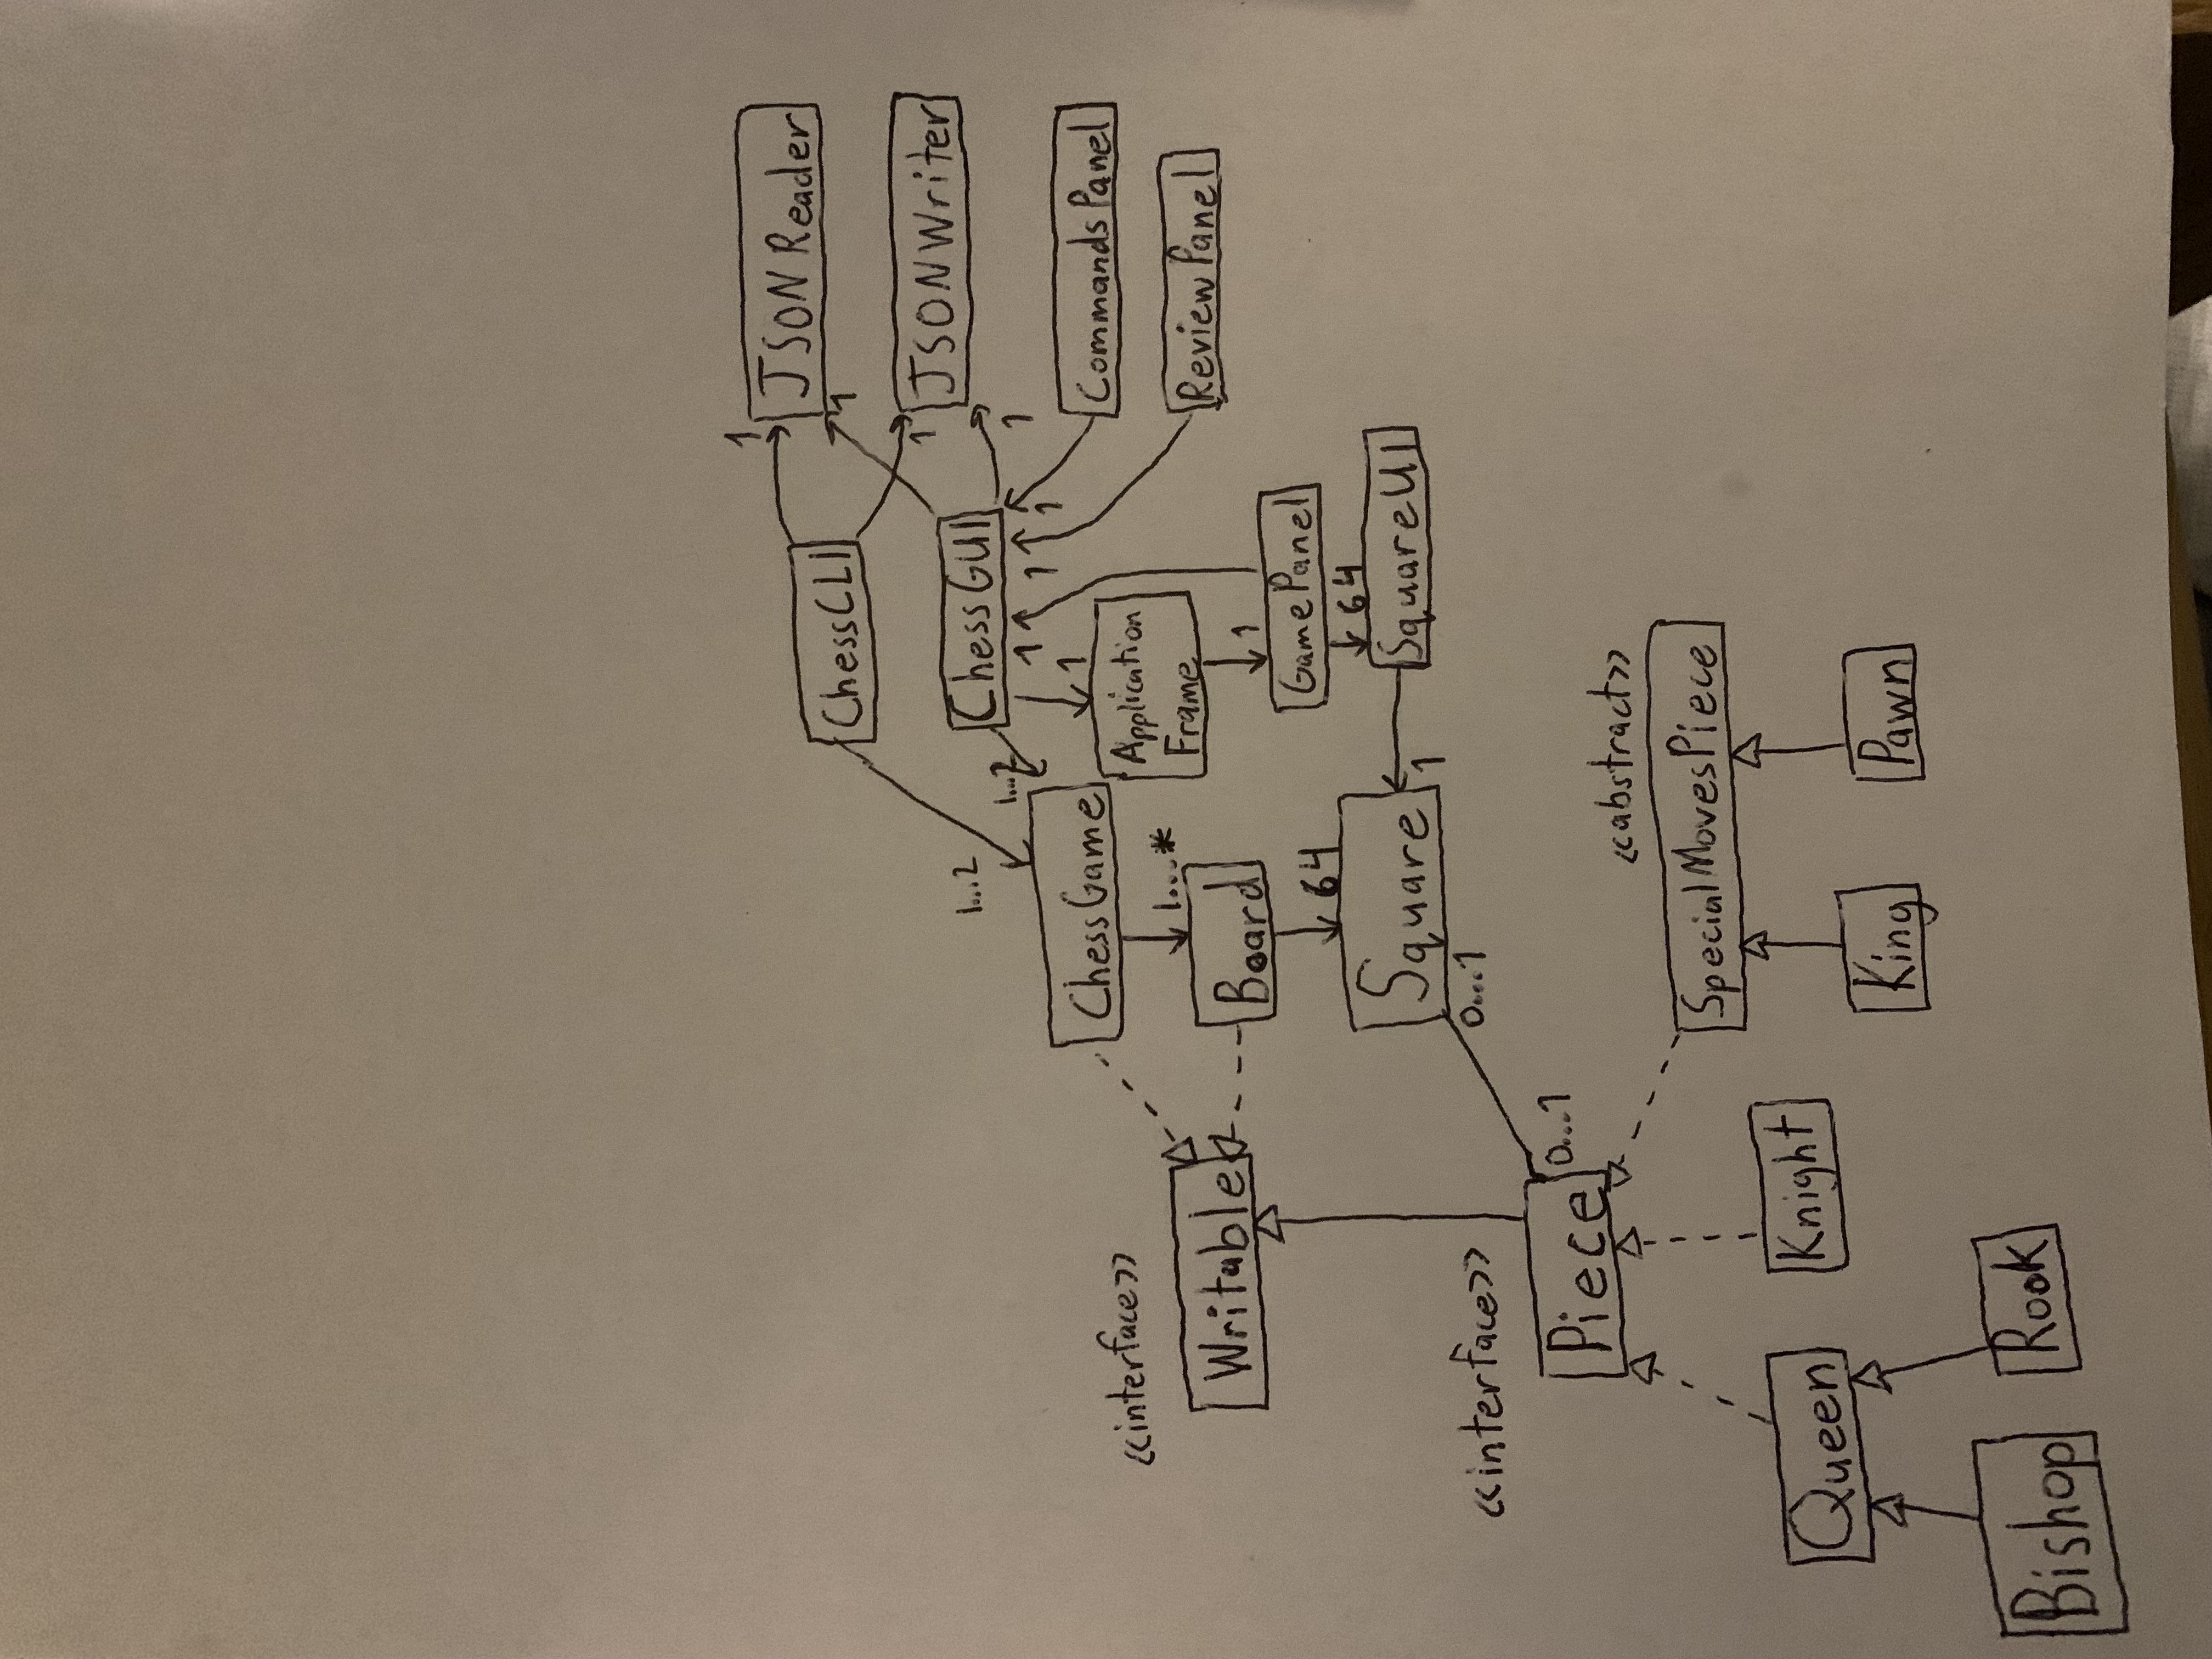 1
JSON Reader
ChessCLI
1
1
JSONWriter
1...2
ChessGUI
1...2
1
1
1
1
1
CommandsPanel
ChessGame
Application
Frame
<<interface>>
1....*
ReviewPanel
Writable
Board
1
GamePanel
64
64
Square
SquareUI
1
0...1
<<interface>>
Piece
0...1
<<abstract>>
SpecialMovesPiece
Queen
Knight
King
Pawn
Bishop
Rook